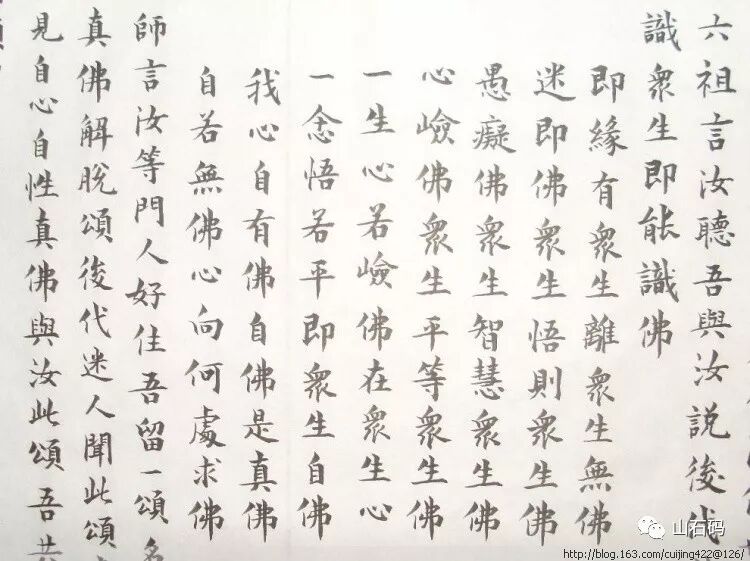 六祖言汝聽吾與汝説後代
識衆生即能識佛
即緣有衆生離衆生無佛
迷即佛衆生悟則衆生佛
愚癡佛衆生智慧衆生佛
心嶮佛衆生平等衆生佛
一生心若嶮佛在衆生心
一念悟若平即衆生自佛
我心自有佛自佛是真佛
自若無佛心向何處求佛
師言汝等門人好住吾留一頌名
真佛解脫頌後代迷人聞此頌
見自心自性真佛與汝此頌吾共
山石码
http://blog.163.com/cuijing422@126/